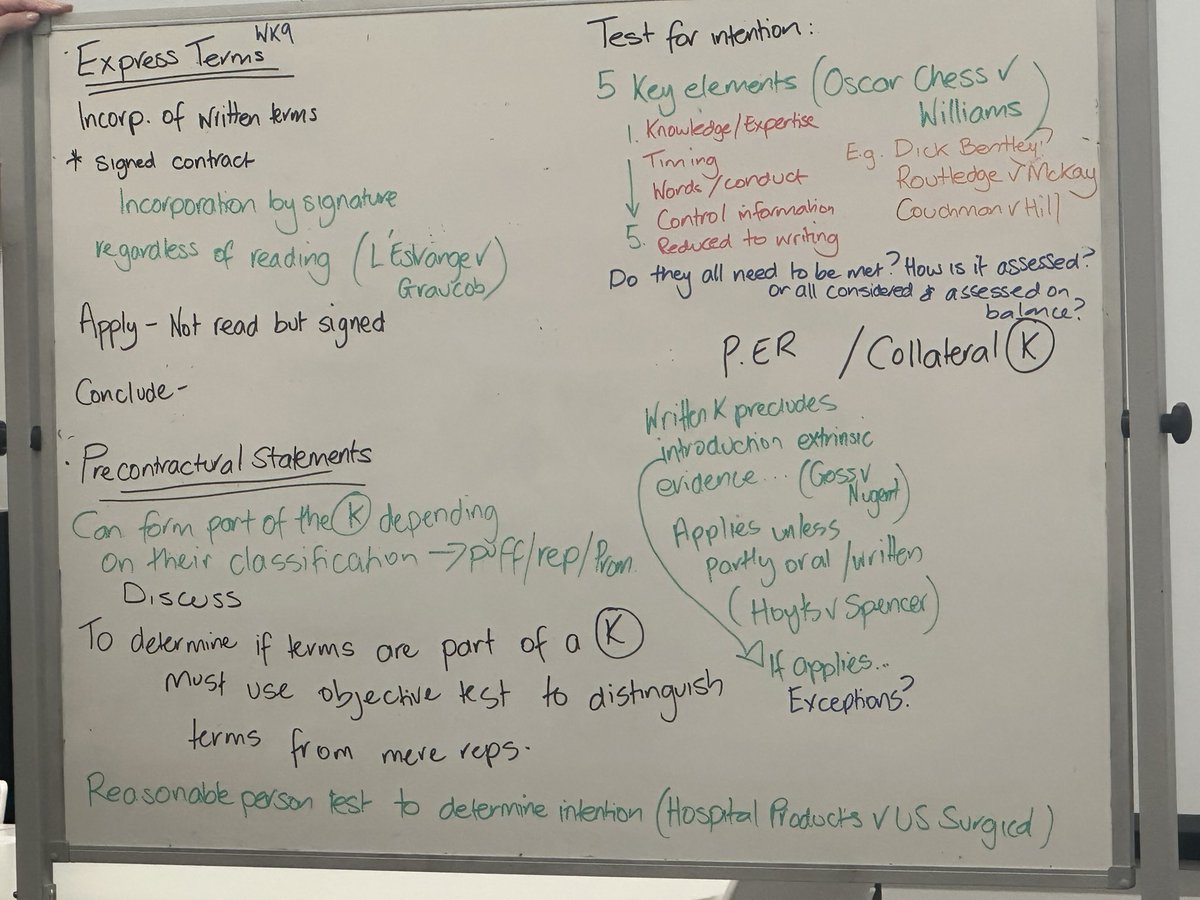 WK9
Express Terms
Incorp. of written terms
* signed contract
Incorporation by signature
regardless of reading (L'Estrange v
Graucob)
Apply - Not read but signed
Conclude -
Precontractural Statements
Can form part of the K depending
on their classification → puff/rep/Prom
Discuss
To determine if terms are part of a K
must use objective test to distinguish
terms from mere reps.
Reasonable person test to determine intention (Hospital Products v US Surgical)
Test for intention:
5 Key elements (Oscar Chess v
Williams)
1. Knowledge/Expertise
Timing
Words/conduct
Control information
5. Reduced to writing
E.g. Dick Bentley?
Routledge v McKay
Couchman v Hill
Do they all need to be met? How is it assessed?
or all considered & assessed on
balance?
P.ER / Collateral K
Written K precludes
introduction extrinsic
evidence... (Goss v
Nugent)
Applies unless
partly oral/written
(Hoyts v Spencer)
If applies...
Exceptions?